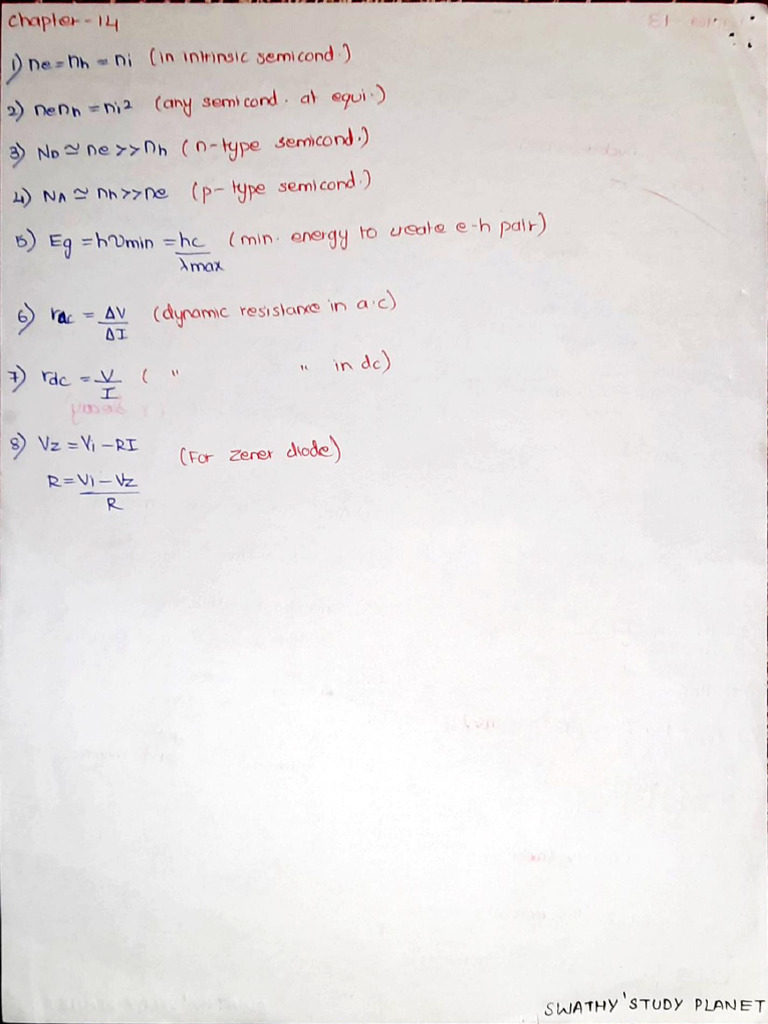 Chapter - 14
1) ne = nh = ni (in intrinsic semicond.)
2) nenh = ni² (any semicond. at equi.)
3) ND ≃ ne >> nh (n-type semicond.)
4) NA ≃ nh >> ne (p-type semicond.)
5) Eg = hνmin = hc/λmax (min. energy to create e-h pair)
6) rac = ΔV/ΔI (dynamic resistance in a.c)
7) rdc = V/I ( " " in dc)
8) Vz = Vi - RI (For zener diode)
R = Vi - Vz/R
SWATHY'STUDY PLANET